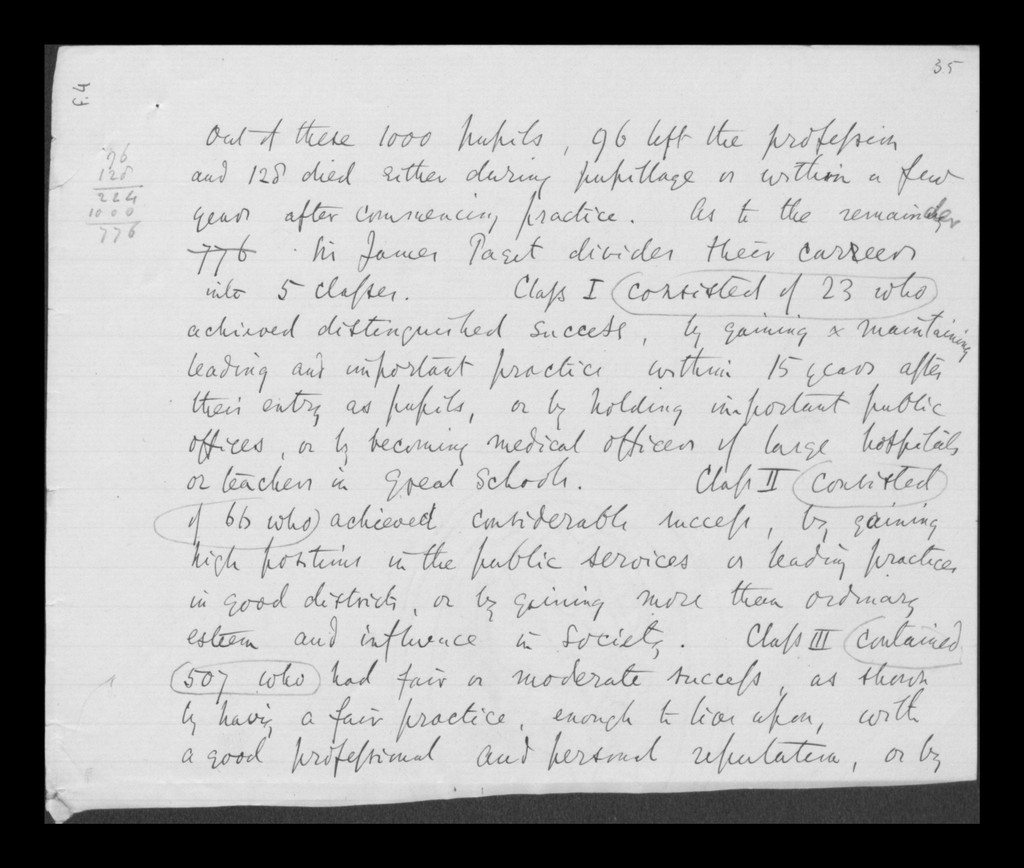 35
f.4
Out of these 1000 pupils, 96 left the profession
96
128
224
1000
776
and 128 died either during pupillage or within a few
years after commencing practice. As to the remainder
776 Sir James Paget divides their careers
into 5 classes. Class I consisted of 23 who
achieved distinguished success, by gaining & maintaining
leading and important practice within 15 years after
their entry as pupils, or by holding important public
offices, or by becoming medical officers of large hospitals
or teachers in great schools. Class II consisted
of 66 who achieved considerable success, by gaining
high positions in the public services or leading practices
in good districts, or by gaining more than ordinary
esteem and influence in society. Class III contained
507 who had fair or moderate success, as shown
by having a fair practice, enough to live upon, with
a good professional and personal reputation, or by